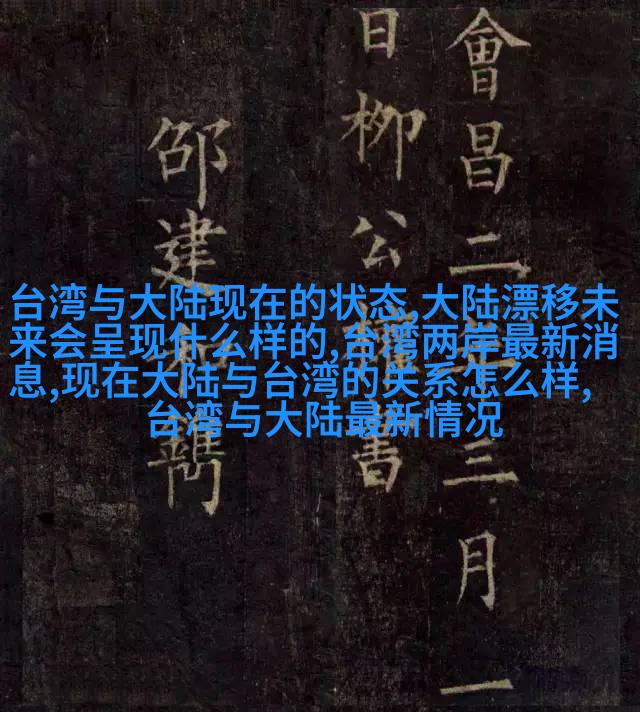 會昌二年三月一
日柳公權書
邵建和
台湾与大陆现在的状态,大陆漂移未
来会呈现什么样的,台湾两岸最新消
息,现在大陆与台湾的关系怎么样,
台湾与大陆最新情况